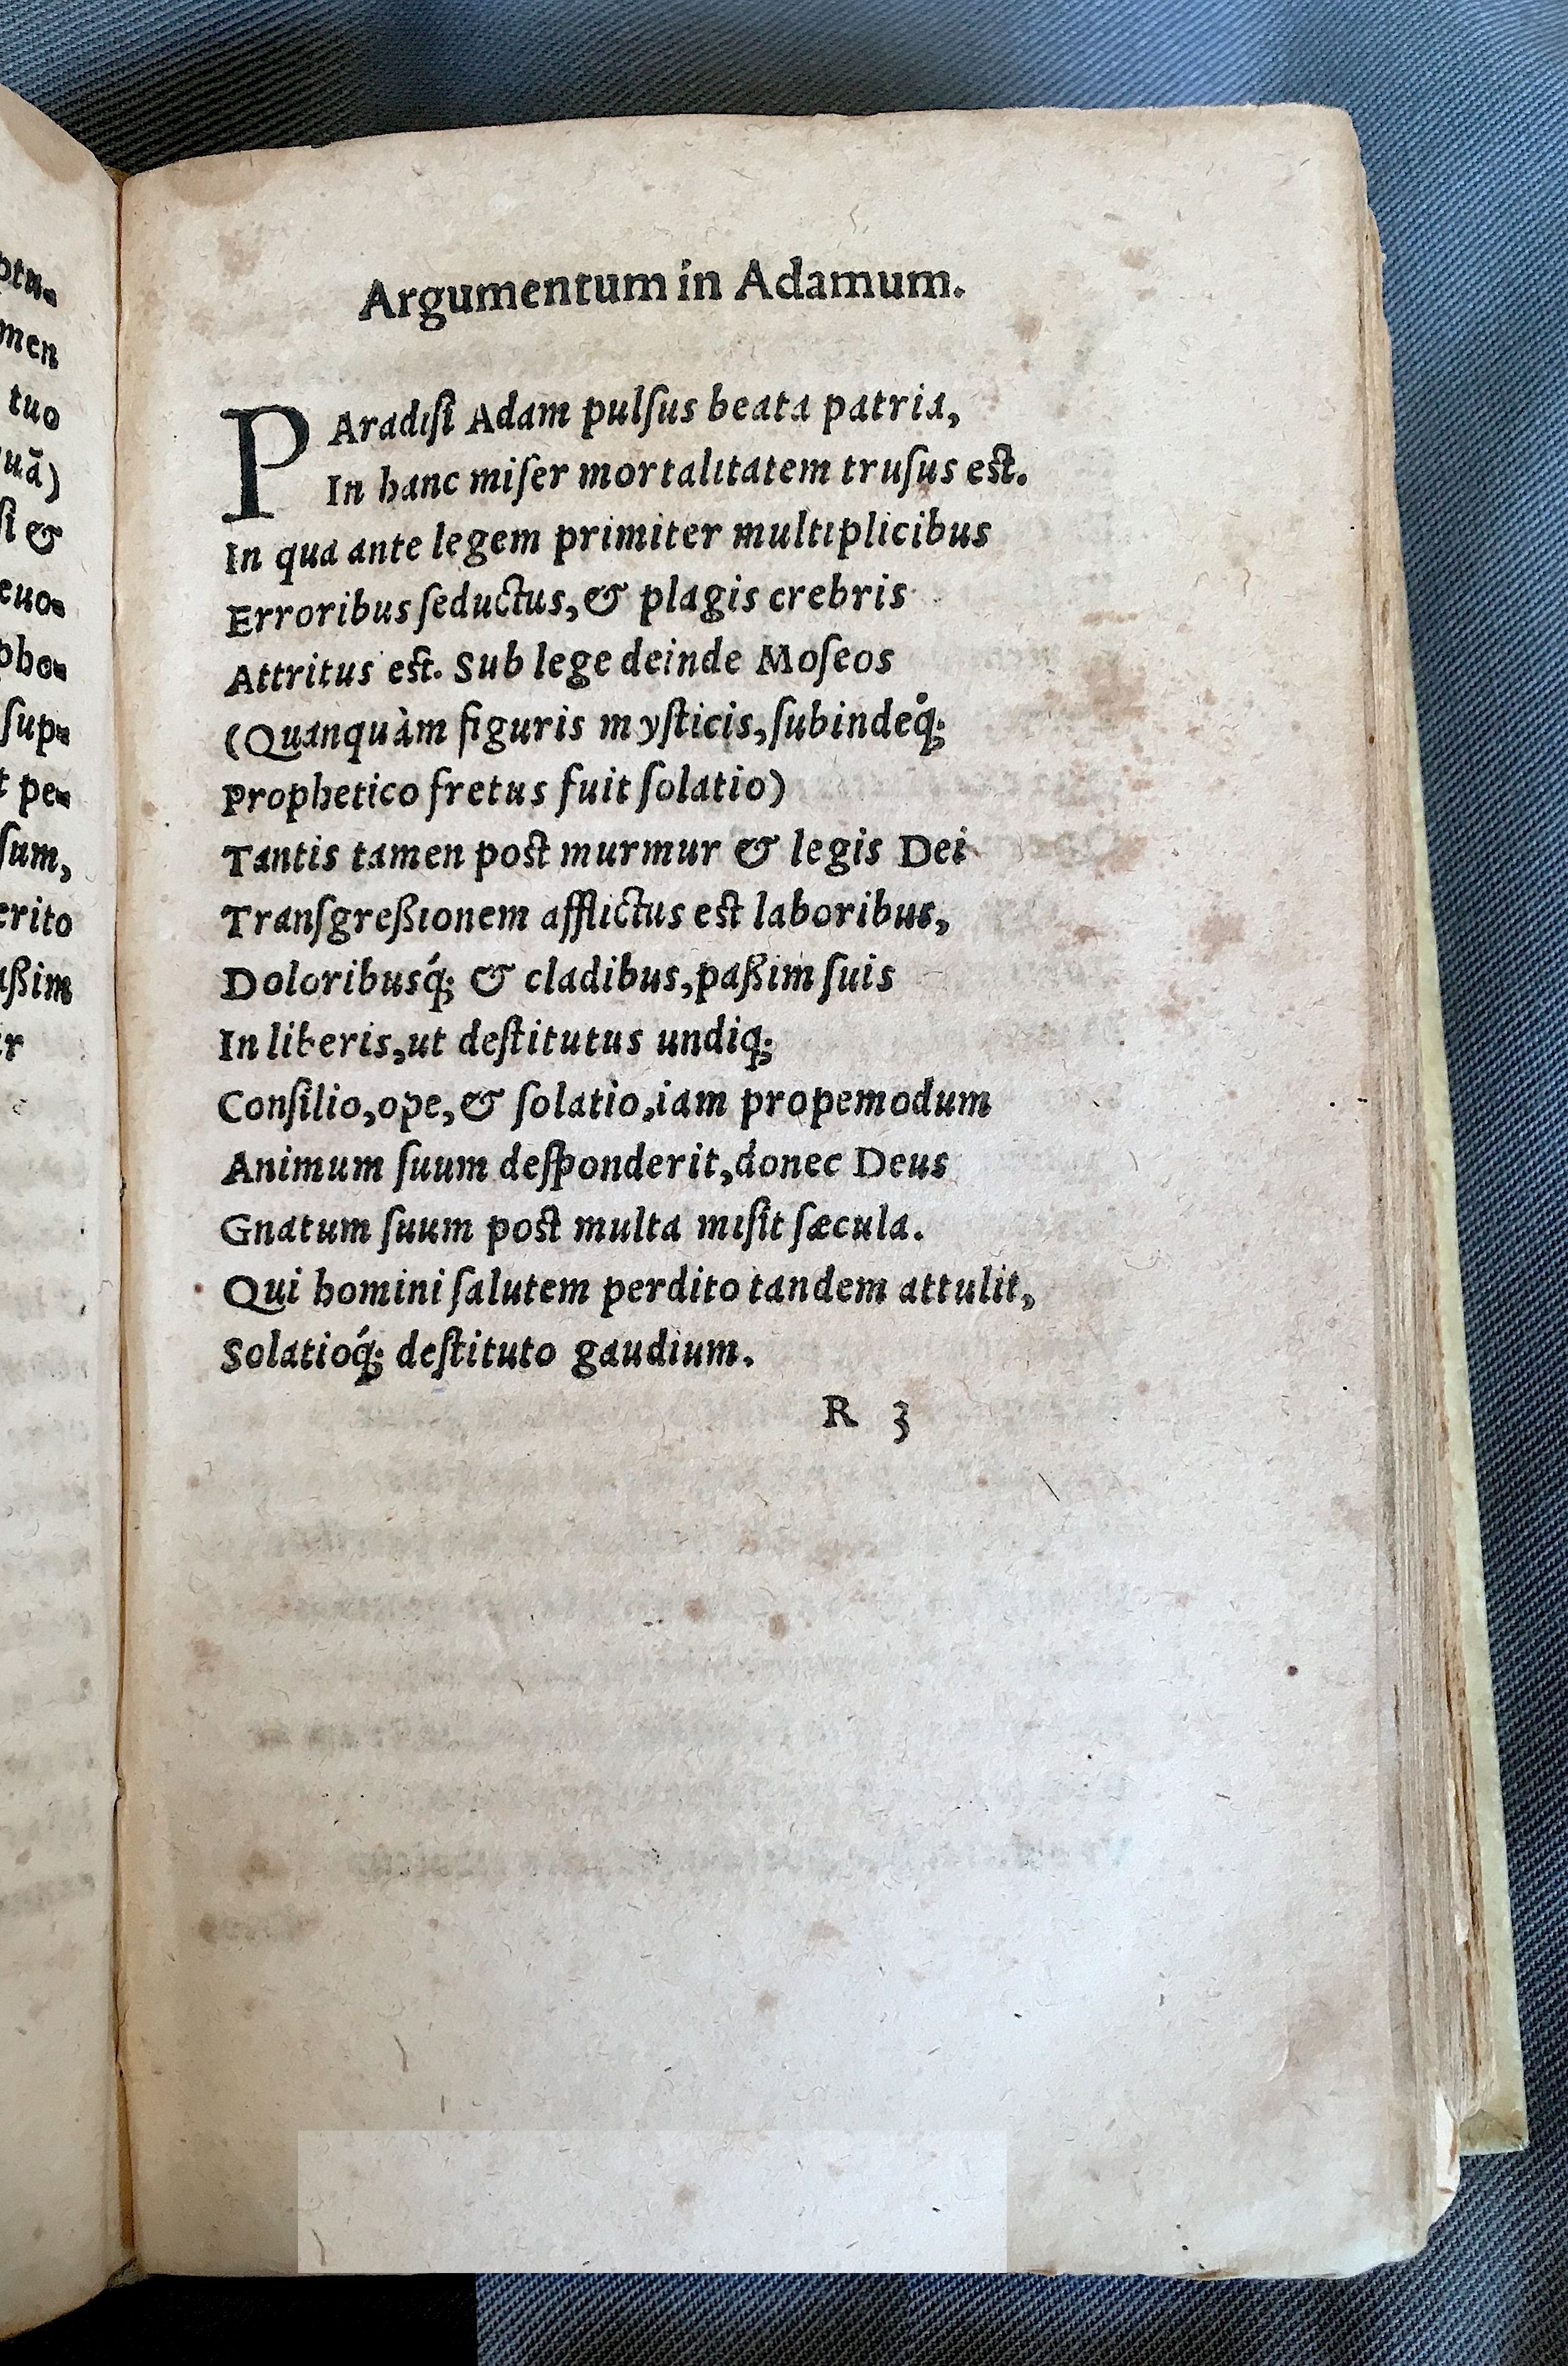 ptu-
men
tuo
uā)
ſi &
euo-
pho-
ſup-
t pe-
ſum,
erito
aßim
Argumentum in Adamum.
PAradiſi Adam pulſus beata patria,
In hanc miſer mortalitatem truſus est.
In qua ante legem primiter multiplicibus
Erroribus ſeductus, & plagis crebris
Attritus est. Sub lege deinde Moſeos
(Quanquàm figuris myſticis, ſubindeq́;
Prophetico fretus fuit ſolatio)
Tantis tamen post murmur & legis Dei
Tranſgreßionem afflictus est laboribus,
Doloribusq́; & cladibus, paßim ſuis
In liberis, ut deſtitutus undiq;
Conſilio, ope, & ſolatio, iam propemodum
Animum ſuum deſponderit, donec Deus
Gnatum ſuum post multa miſit ſæcula.
Qui homini ſalutem perdito tandem attulit,
Solatioq́; deſtituto gaudium.
R 3